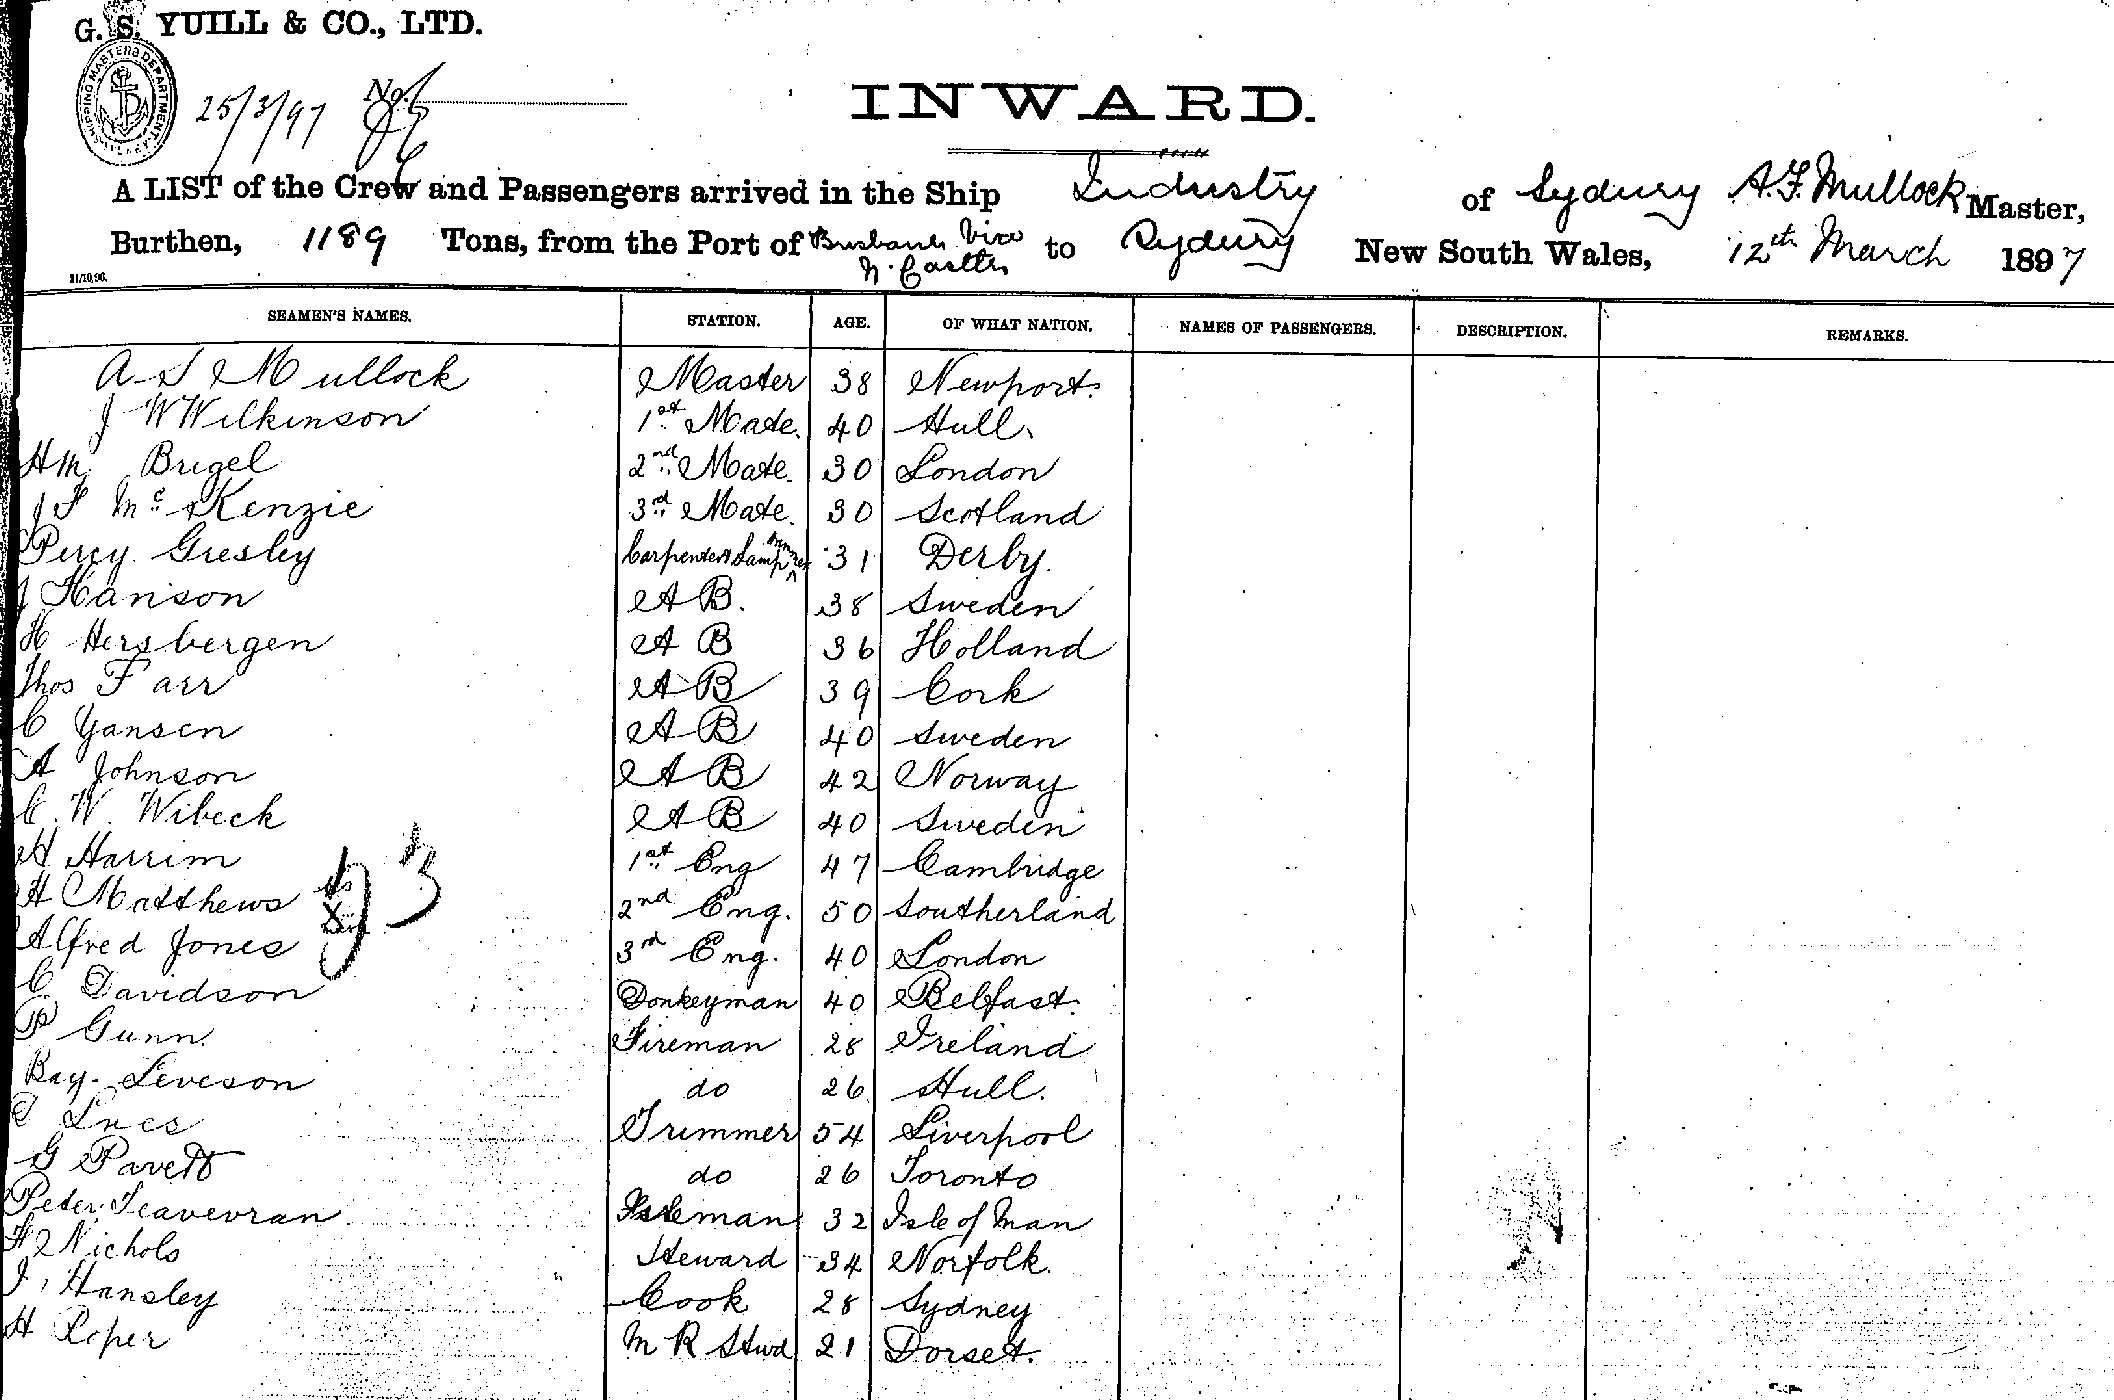 G. S. YUILL & CO., LTD.
SHIPPING MASTERS DEPARTMENT
25/3/97 No.
INWARD.
A LIST of the Crew and Passengers arrived in the Ship Industry of Sydney A.F. Mullock Master,
Burthen, 1189 Tons, from the Port of Brisbane Via N. Castle to Sydney New South Wales, 12th March 1897
31/10/96.
SEAMEN'S NAMES. STATION. AGE. OF WHAT NATION. NAMES OF PASSENGERS. DESCRIPTION. REMARKS.
A F Mullock Master 38 Newport.
J W Wilkinson 1st Mate. 40 Hull.
Hm. Brigel 2nd Mate. 30 London
J F McKenzie 3rd Mate. 30 Scotland
Percy Gresley Carpenter & Lamp trimmer 31 Derby.
J Hanson A B. 38 Sweden
H Hersbergen A B 36 Holland
Thos Farr A B 39 Cork
C Yansen A B 40 Sweden
A Johnson A B 42 Norway
C. W. Wibeck A B 40 Sweden
H Harrim 1st Eng 47 Cambridge
H Matthews 2nd Eng. 50 Southerland
Alfred Jones 3rd Eng. 40 London
C Davidson Donkeyman 40 Belfast.
P Gunn. Fireman 28 Ireland
Ray. Leveson do 26 Hull.
Ines Trimmer 54 Liverpool
G Pavett do 26 Toronto
Peter Teavevran 32 Isle of Man
H Nichols Steward 34 Norfolk.
J. Hansley Cook 28 Sydney
H Roper M R Stwd 21 Dorset.